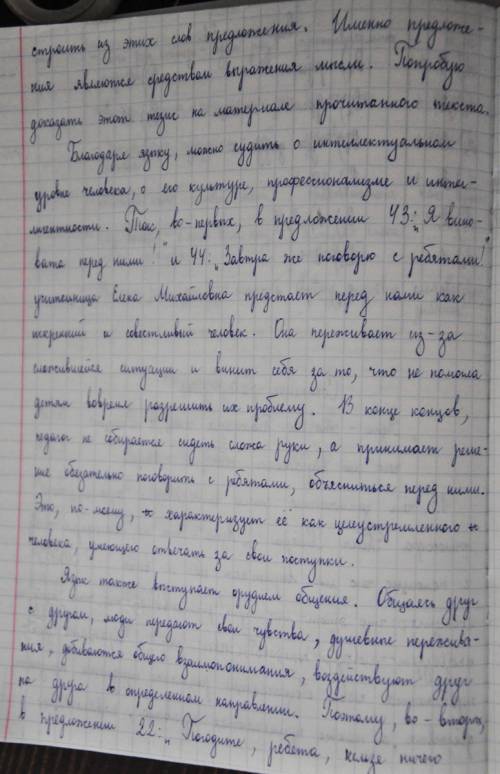 строить из этих слов предложения. Именно предложе-
ния являются средством выражения мысли. Попробую
доказать этот тезис на материале прочитанного текста.
Благодаря языку, можно судить о интеллектуальном
уровне человека, о его культуре, профессионализме и интел-
лигентности. Так, во-первых, в предложении 43: „Я вино-
вата перед ними!" и 44: „Завтра же поговорю с ребятами!"
учительница Елена Михайловна предстаёт перед нами как
искренний и совестливый человек. Она переживает из-за
сложившейся ситуации и винит себя за то, что не помогла
детям вовремя разрешить их проблему. В конце концов,
педагог не собирается сидеть сложа руки, а принимает реше-
ние обязательно поговорить с ребятами, объясниться перед ними.
Это, по-моему, характеризует её как целеустремленного
человека, умеющего отвечать за свои поступки.
Язык также выступает орудием общения. Общаясь друг
с другом, люди передают свои чувства, душевные пережива-
ния, добиваются общего взаимопонимания, воздействуют друг
на друга в определенном направлении. Поэтому, во-вторых,
в предложении 22: „Погодите, ребята, нельзя ничего